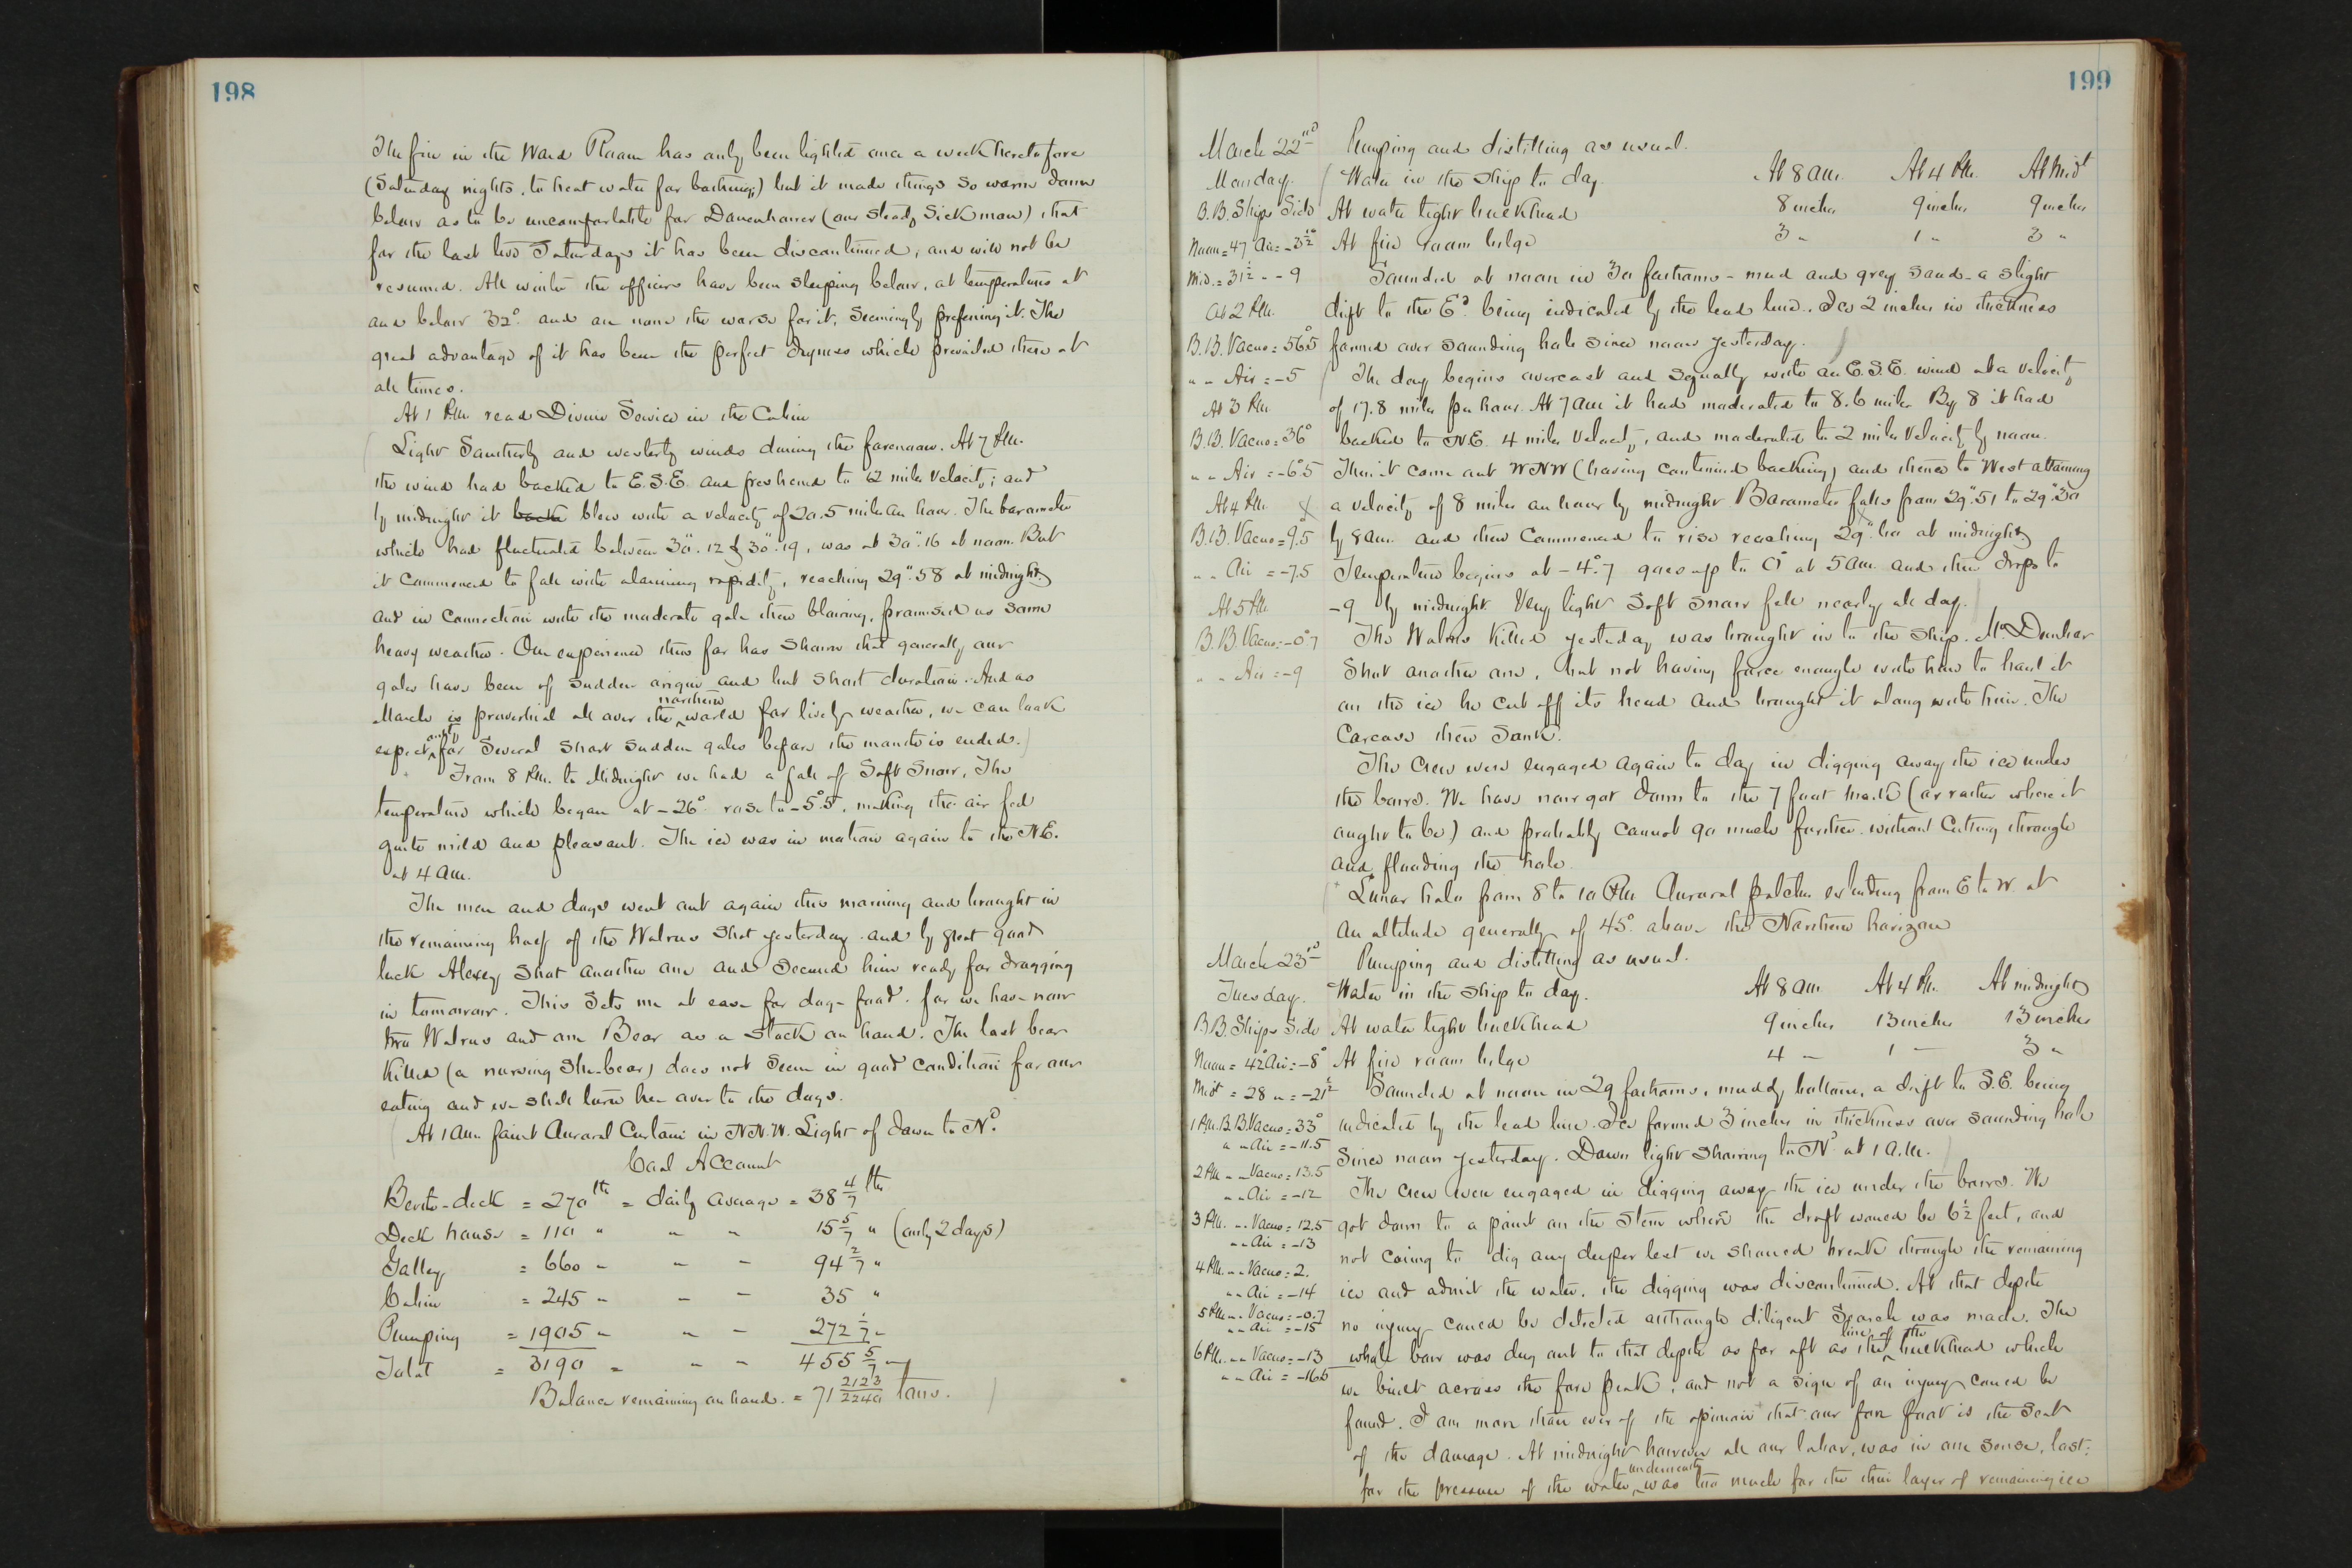 198
The fire in the Ward Room has only been lighted once a week heretofore
(Saturday nights, to heat water for bathing,) but it made things so warm down
below as to be uncomfortable for Danenhower (our steady sick man) that
for the last two Saturdays it has been discontinued, and will not be
resumed. All winter the officers have been sleeping below, at temperatures at
and below 32° and are none the worse for it, seemingly preferring it. The
great advantage of it has been the perfect dryness which prevailed there at
all times.
At 1 P.M. read Divine Service in the Cabin
Light Southerly and westerly winds during the forenoon. At 7 P.M.
the wind had backed to E.S.E. and freshened to 12 miles velocity; and
by midnight it blew with a velocity of 20.5 miles an hour. The barometer
which had fluctuated between 30".12 & 30".19, was at 30".16 at noon. But
it commenced to fall with alarming rapidity, reaching 29".58 at midnight
and in connection with the moderate gale then blowing, promised us some
heavy weather. Our experience thus far has shown that generally our
gales have been of sudden origin and but short duration. And as
March is proverbial all over the northern world for lively weather, we can look
expectantly for several short sudden gales before the month is ended.
From 8 P.M. to Midnight we had a fall of soft snow. The
temperature which began at -26° rose to -5°.5, making the air feel
quite mild and pleasant. The ice was in motion again to the N.E.
at 4 A.M.
The men and dogs went out again this morning and brought in
the remaining half of the Walrus shot yesterday and by great good
luck Alexey shot another one and secured him ready for dragging
in tomorrow. This sets me at ease for dog-food, for we have now
two Walrus and one Bear as a stock on hand. The last bear
killed (a nursing she-bear) does not seem in good condition for our
eating and we shall turn her over to the dogs.
At 1 A.M. faint Auroral Curtain in N.N.W. Light of dawn to Nd.
Coal Account
Berth-deck = 270 lbs = daily average = 38 4/7 lbs
Deck house = 110 " " " 15 5/7 " (only 2 days)
Galley = 660 " " " 94 2/7 "
Cabin = 245 " " " 35 "
Pumping = 1905 " " " 272 1/7 "
Total = 3190 " " " 455 5/7 "
Balance remaining on hand = 71 2123/2240 tons.
199
March 22nd Pumping and distilling as usual.
Monday. Water in the Ship to day. At 8 A.M. At 4 P.M. At Midt
B.B. Ships Side At water tight bulkhead 8 inches 9 inches 9 inches
Noon = 47 Air = -3 1/2° At fire room bilge 3 " 1 " 3 "
Mid. = 31 1/2 " - 9 Sounded at noon in 30 fathoms - mud and grey sand - a slight
At 2 P.M. drift to the Ed. being indicated by the lead line. Ice 2 inches in thickness
B.B. Vacuo = 56°.5 formed over sounding hole since noon yesterday.
" " Air = -5 The day begins overcast and squally with an E.S.E. wind at a velocity
At 3 P.M. of 17.8 miles per hour. At 7 A.M. it had moderated to 8.6 miles By 8 it had
B.B. Vacuo = 36° backed to N.E. 4 miles velocity, and moderated to 2 miles velocity by noon.
" " Air = -6°.5 Then it came out W.N.W (having continued backing) and thence to West attaining
At 4 P.M. a velocity of 8 miles an hour by midnight. Barometer falls from 29".51 to 29".30
B.B. Vacuo = 9°.5 by 8 A.M. and then commenced to rise reaching 29".60 at midnight
" " Air = -7.5 Temperature begins at -4°.7 goes up to 0° at 5 A.M. and then drops to
At 5 P.M. -9 by midnight. Very light soft snow fell nearly all day.
B.B. Vacuo = -0°.7 The Walrus killed yesterday was brought in to the ship. Mr Dunbar
" " Air = -9 shot another one, but not having force enough with him to haul it
on the ice he cut off its head and brought it along with him. The
carcass then sank.
The crew were engaged again to day in digging away the ice under
the bows. We have now got down to the 7 foot mark (or rather where it
ought to be) and probably cannot go much further without cutting through
and flooding the hole.
Lunar halo from 8 to 10 P.M. Auroral patches extending from E to W. at
an altitude generally of 45° above the Northern horizon
March 23rd Pumping and distilling as usual.
Tuesday. Water in the Ship to day. At 8 A.M. At 4 P.M. At midnight
B.B. Ships Side At water tight bulkhead 9 inches 13 inches 13 inches
Noon = 42° Air = -8° At fire room bilge 4 " 1 " 3 "
Midt = 28 " = -21 1/2 Sounded at noon in 29 fathoms, muddy bottom, a drift to S.E. being
1 P.M. B.B. Vacuo = 33° indicated by the lead line. Ice formed 3 inches in thickness over sounding hole
" " Air = -11.5 since noon yesterday. Dawn light showing to Nd at 1 A.M.
2 P.M. " " Vacuo = 13.5
" " Air = -12 The crew were engaged in digging away the ice under the bows. We
3 P.M. " " Vacuo = 12.5 got down to a point on the stem where the draft would be 6 1/2 feet, and
" " Air = -13 not caring to dig any deeper lest we should break through the remaining
4 P.M. " " Vacuo = 2.
" " Air = -14 ice and admit the water, the digging was discontinued. At that depth
5 P.M. " " Vacuo = -0.7
" " Air = -15 no injury could be detected although diligent search was made. The
6 P.M. " " Vacuo = -13 whole bow was dug out to that depth as far aft as the line of the bulkhead which
" " Air = -16.5 we built across the fore peak, and not a sign of an injury could be
found. I am more than ever of the opinion that our fore foot is the seat
of the damage. At midnight however all our labor, was in one sense, lost;
for the pressure of the water underneath was too much for the thin layer of remaining ice